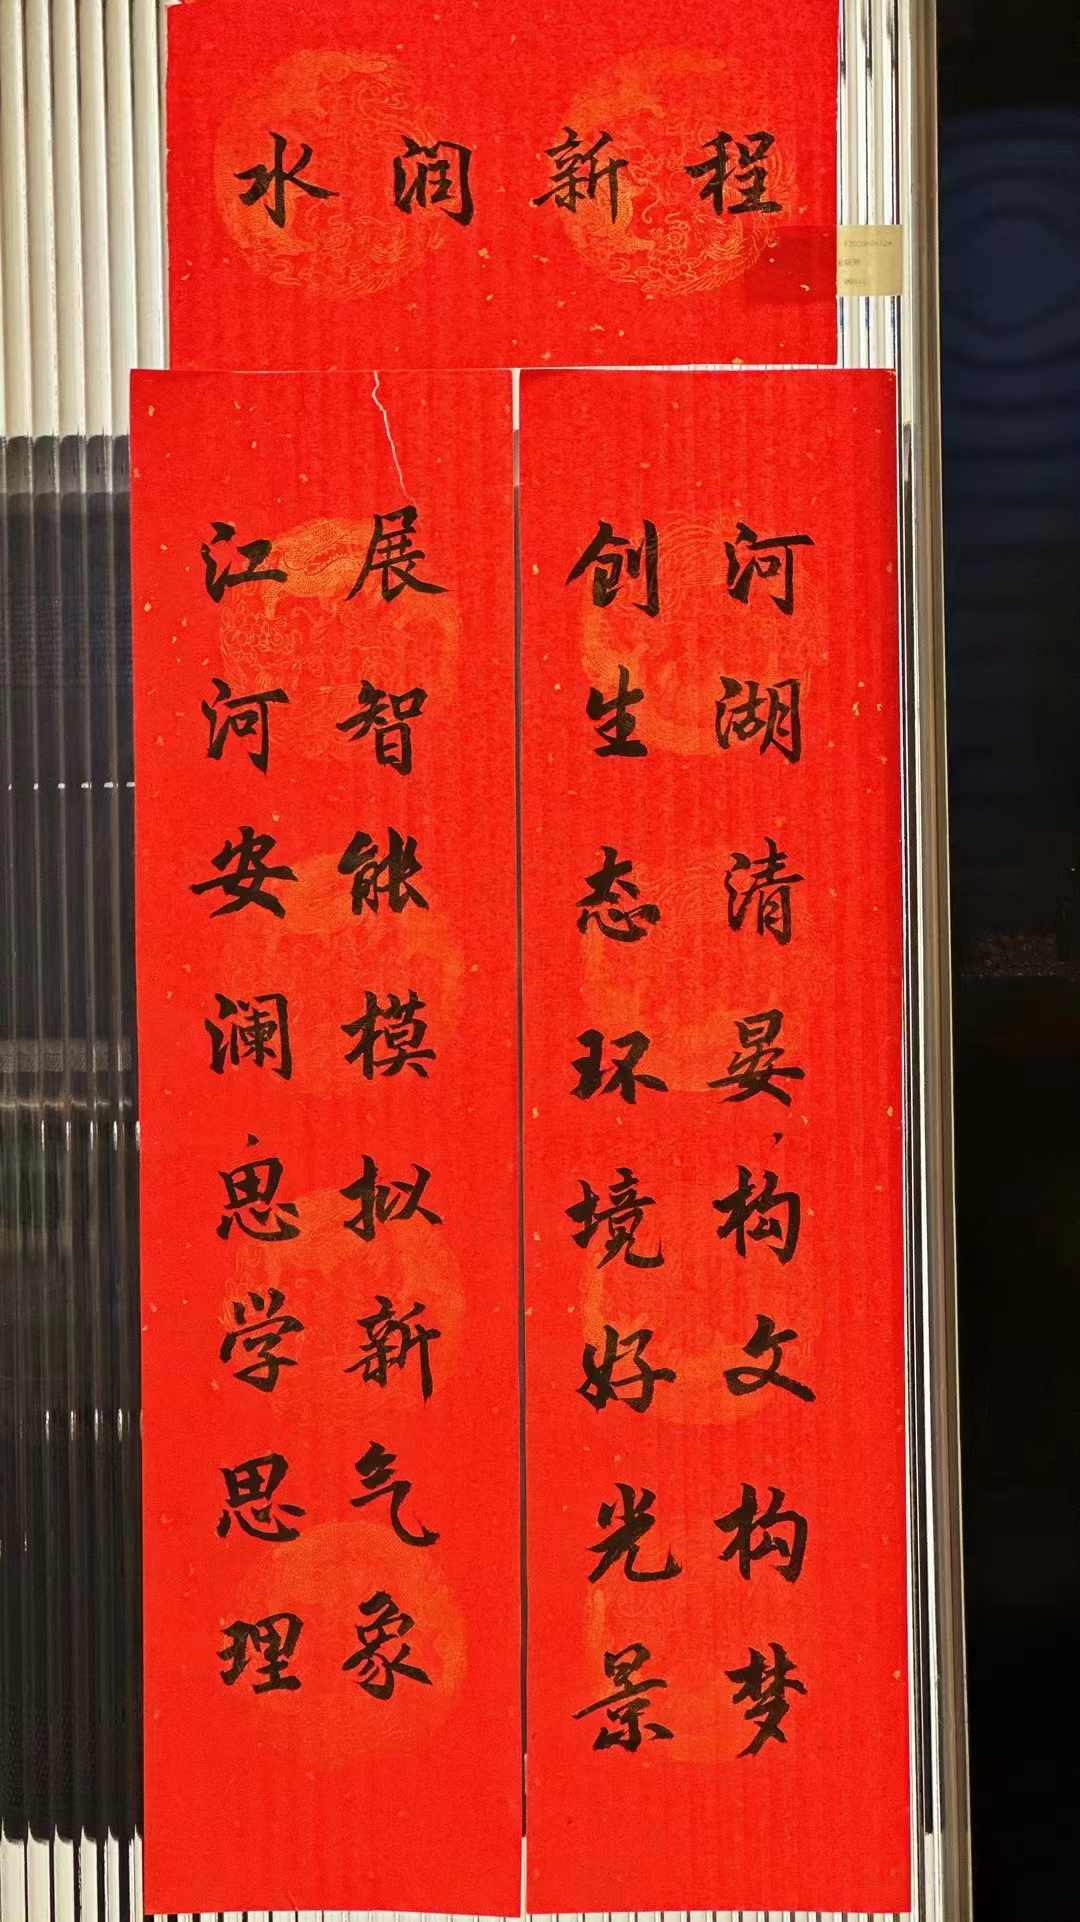 水润新程
河湖清晏，构文构梦
创生态环境好光景
江河安澜，思学思理
展智能模拟新气象